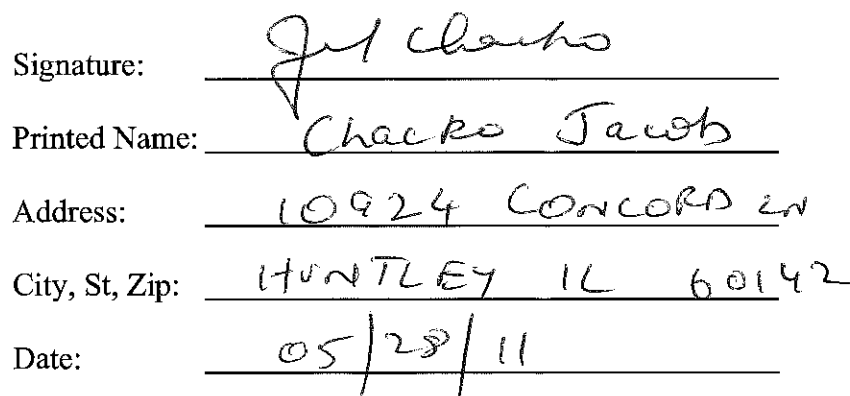 Signature: Chacko
Printed Name: Chacko Jacob
Address: 10924 CONCORD LN
City, St, Zip: HUNTLEY IL 60142
Date: 05/28/11